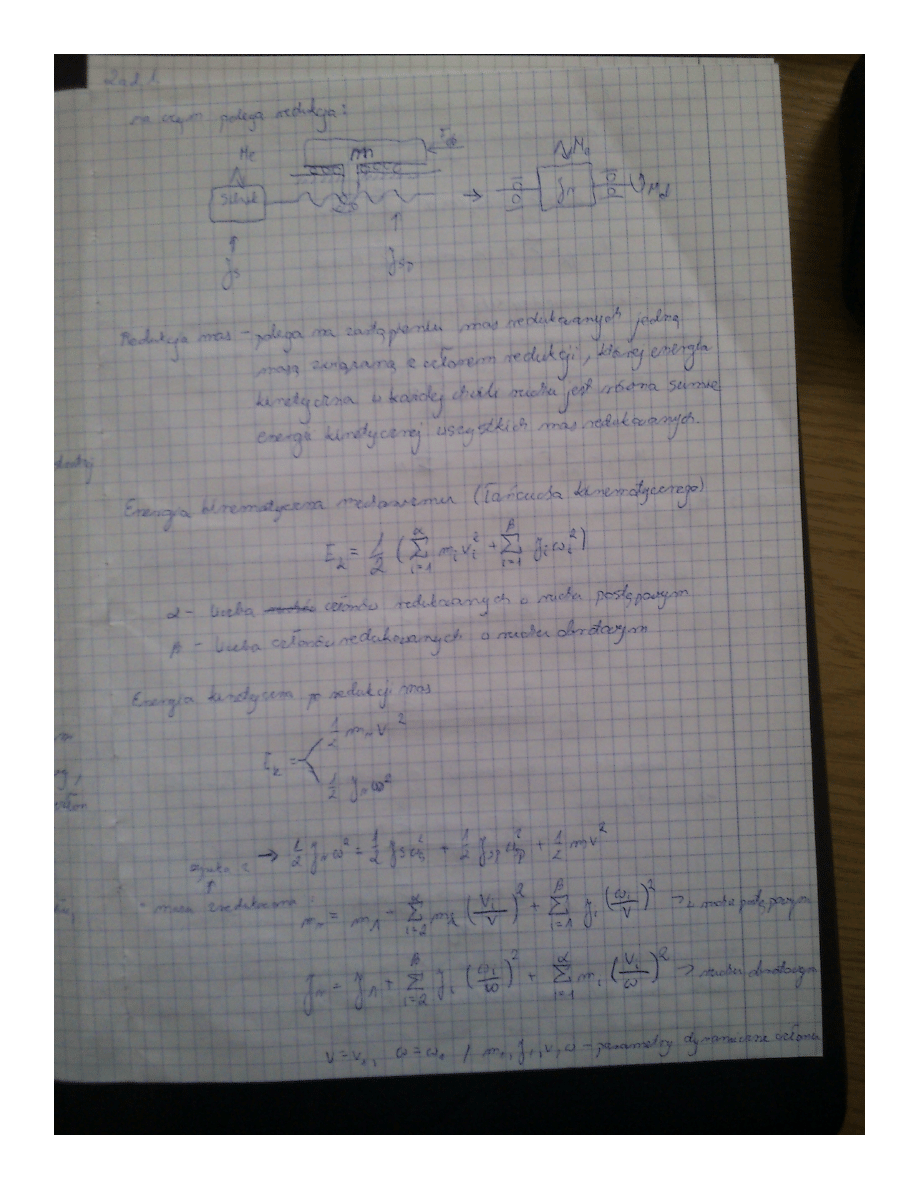 Zad. 1
na czym polega redukcja:
Mc
m
Silnik
Js
Jsp
→
Jr
Redukcja mas – polega na zastąpieniu mas redukowanych jedną
masą związaną z członem redukcji, której energia
kinetyczna w każdej chwili ruchu jest równa sumie
energii kinetycznej wszystkich mas redukowanych.
Energia kinematyczna mechanizmu (łańcucha kinematycznego)
E_k = 1/2 (∑_{i=1}^{α} m_i v_i^2 + ∑_{i=1}^{β} J_i ω_i^2)
α – liczba członów redukowanych o ruchu postępowym
β – liczba członów redukowanych o ruchu obrotowym
Energia kinetyczna po redukcji mas
1/2 m_r v^2
E_k =
1/2 J_r ω^2
→ 1/2 J_r ω^2 = 1/2 J_s ω_s^2 + 1/2 J_sp ω_sp^2 + 1/2 m v^2
- masa zredukowana :
m_r = m_1 + ∑_{i=2}^{α} m_i (v_i/v)^2 + ∑_{i=1}^{β} J_i (ω_i/v)^2 → w ruchu postępowym
J_r = J_1 + ∑_{i=2}^{β} J_i (ω_i/ω)^2 + ∑_{i=1}^{α} m_i (v_i/ω)^2 → ruchu obrotowym
v = v_r, ω = ω_r / m_r, J_r, v, ω – parametry dynamiczne członu